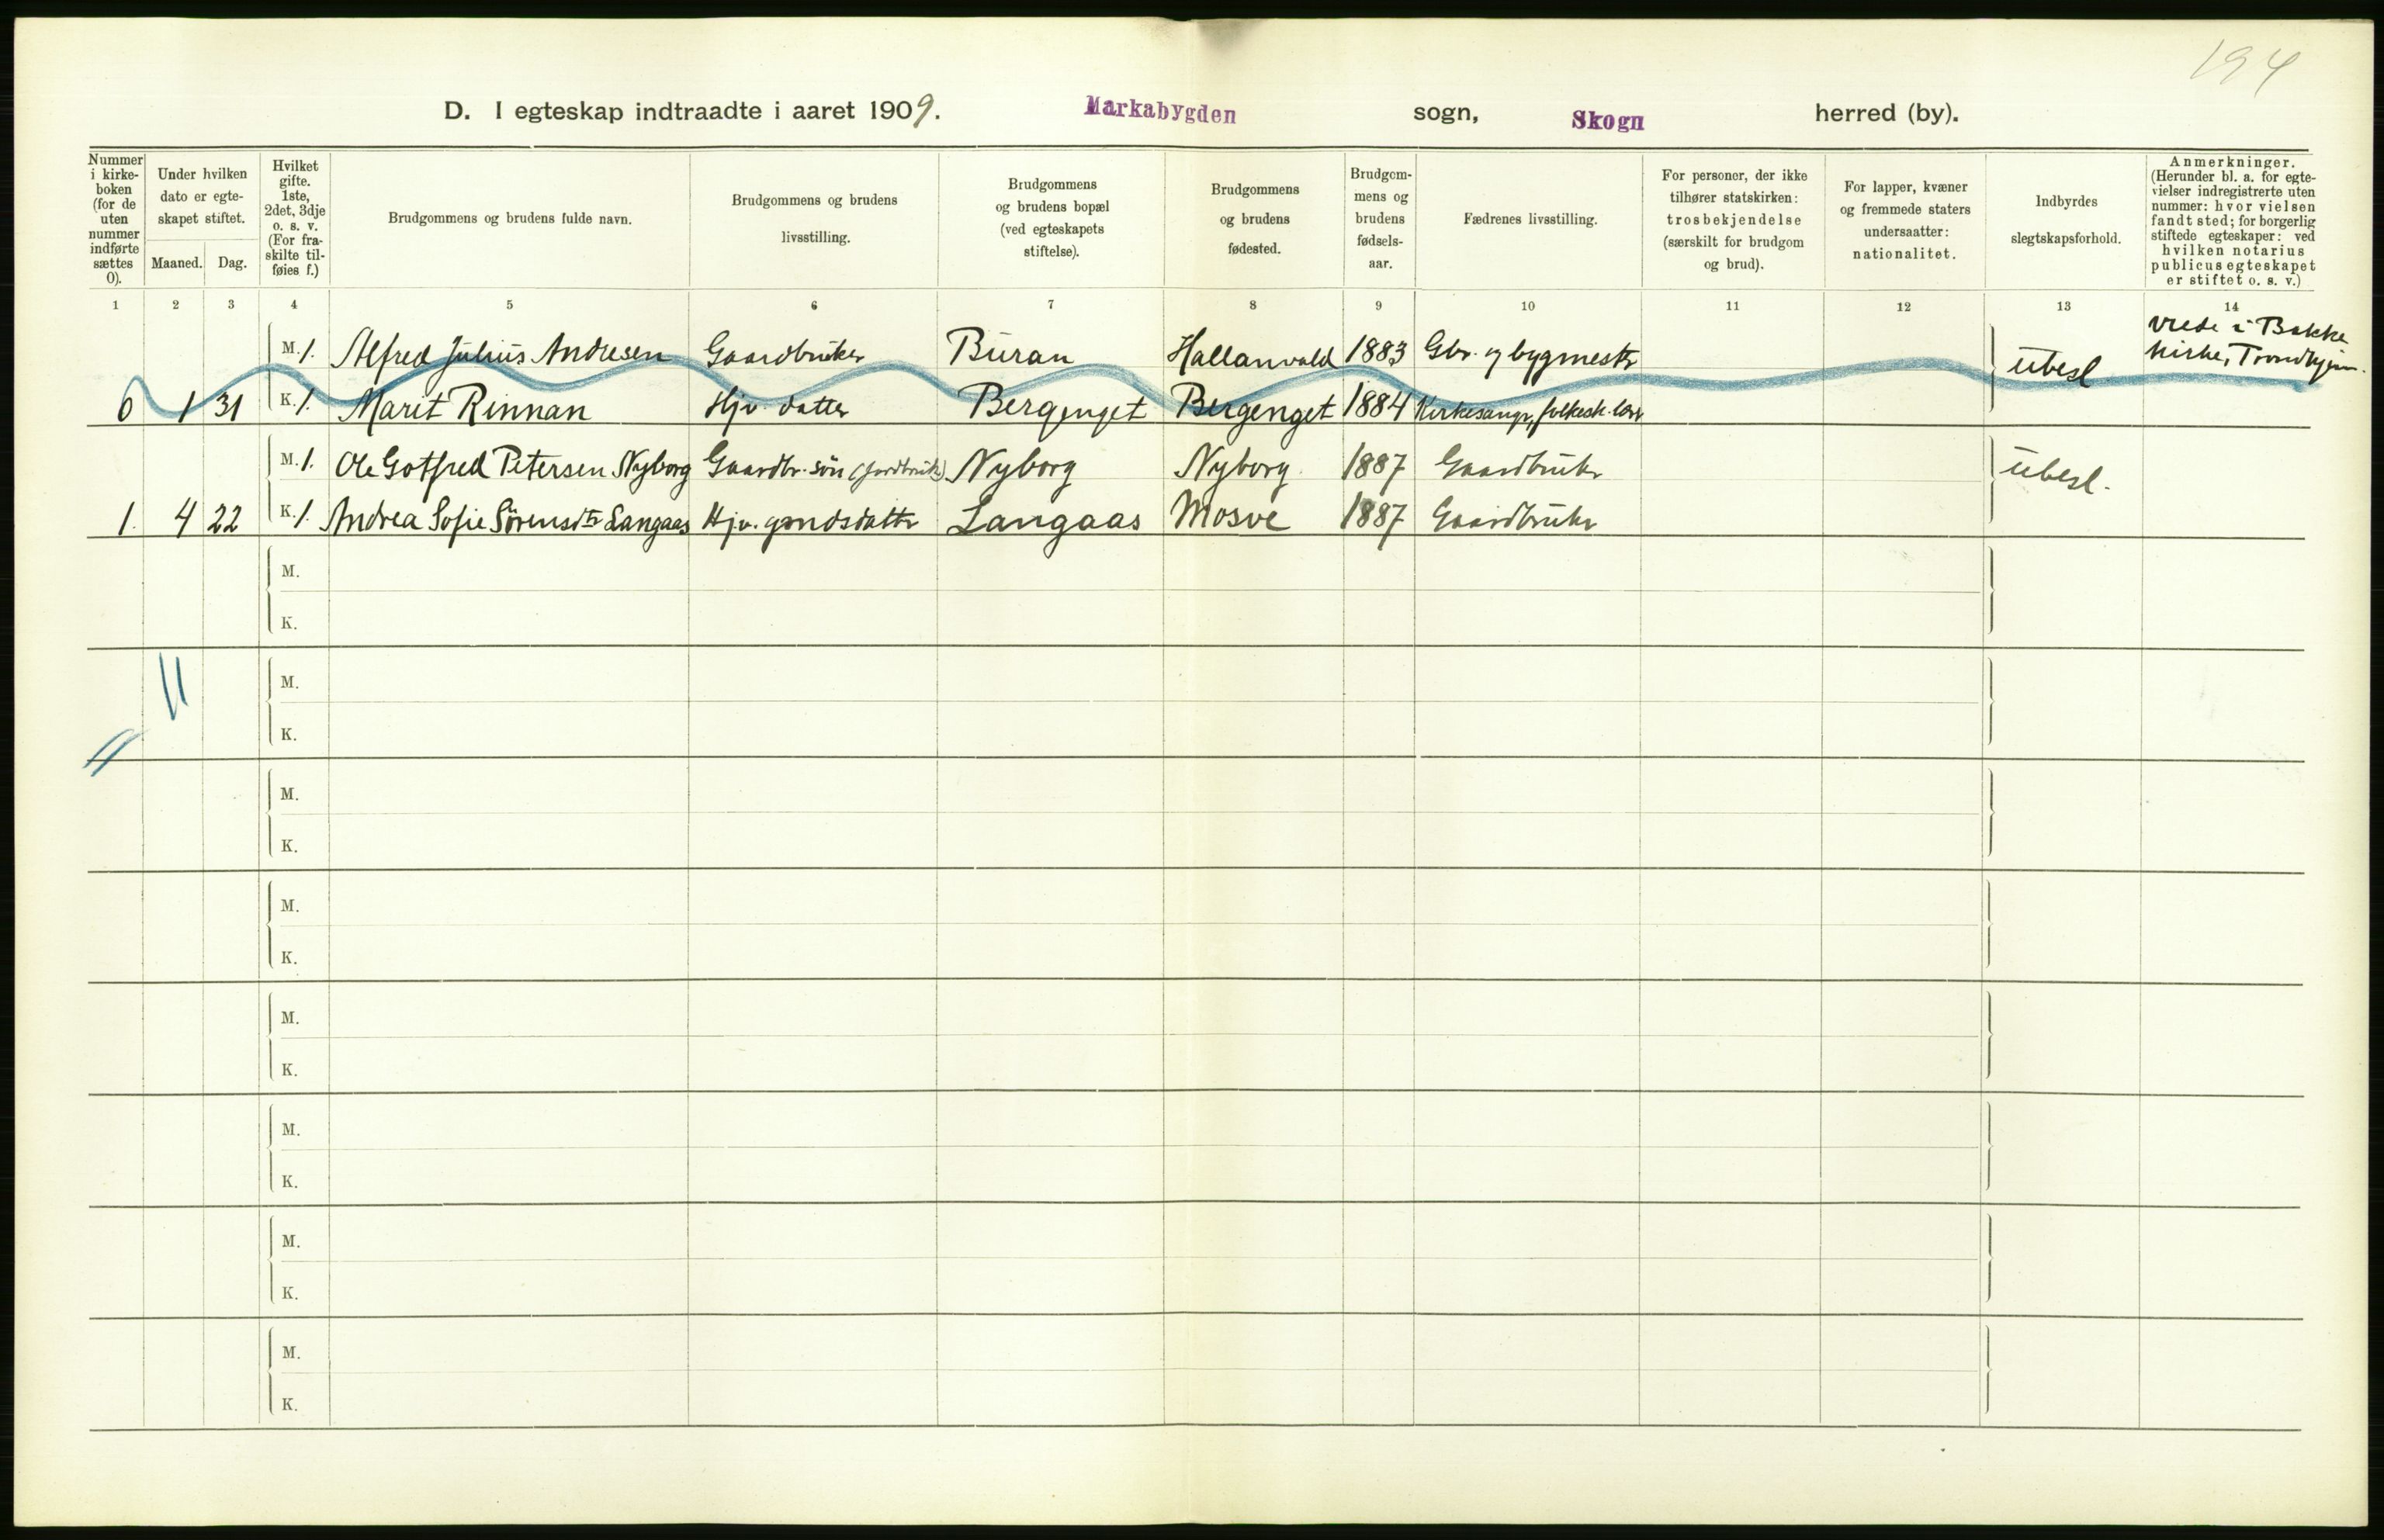 194
D. I egteskap indtraadte i aaret 1909. Markabygden sogn, Skogn herred (by).
Nummer i kirke-boken (for de uten nummer indførte sættes 0).
Under hvilken dato er egte-skapet stiftet.
Maaned. Dag.
Hvilket gifte. 1ste, 2det, 3dje o. s. v. (For fra-skilte til-føies f.)
Brudgommens og brudens fulde navn.
Brudgommens og brudens livsstilling.
Brudgommens og brudens bopæl (ved egteskapets stiftelse).
Brudgommens og brudens fødested.
Brudgom-mens og brudens fødsels-aar.
Fædrenes livsstilling.
For personer, der ikke tilhører statskirken: trosbekjendelse (særskilt for brudgom og brud).
For lapper, kvæner og fremmede staters undersaatter: nationalitet.
Indbyrdes slegtskapsforhold.
Anmerkninger. (Herunder bl. a. for egte-vielser indregistrerte uten nummer: hvor vielsen fandt sted; for borgerlig stiftede egteskaper: ved hvilken notarius publicus egteskapet er stiftet o. s. v.)
1 2 3 4 5 6 7 8 9 10 11 12 13 14
M. 1. Alfred Julius Andresen Gaardbruker Buran Hallanvald 1883 Gbr. og bygmester ubesl viede i Bakke kirke, Trondhjem.
0 1 31 K. 1. Marit Rinnan Hjv. datter Bergenget Bergenget 1884 Kirkesangr, folkesk. lærer
M. 1. Ole Gotfred Petersen Nyborg Gaardbr. søn (jordbruk) Nyborg Nyborg 1887 Gaardbruker ubesl.
1. 4 22 K. 1. Andrea Sofie Sørensdtr Langaas Hjv. gmdsdatter Langaas Mosve 1887 Gaardbruker
M.
K.
M.
K.
M.
K.
M.
K.
M.
K.
M.
K.
M.
K.
M.
K.